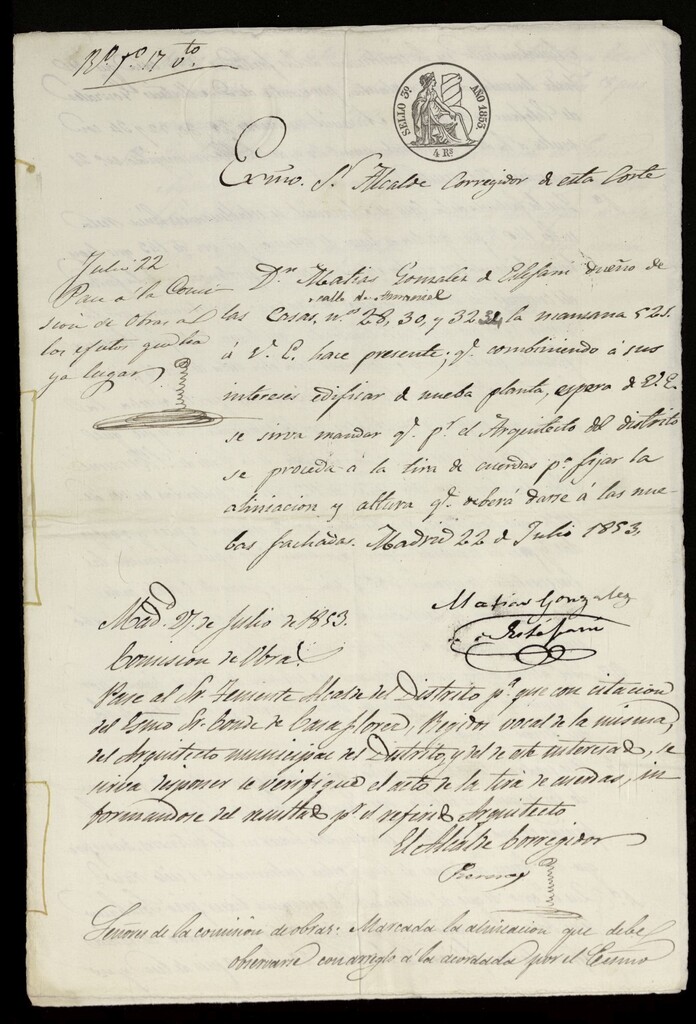 Rº. fº. 17 vto
SELLO 3º. AÑO 1853.
4 Rs
Exmo. Sr. Alcalde Corregidor de esta Corte
Julio 22
Pase á la Comi
sion de Obras á
los efectos que ha
ya lugar
Dn. Matias Gonzalez de Estefani dueño de
calle de Amaniel
las Casas, nos. 28, 30, y 32 de la manzana 521.
á V. E. hace presente; qe. combiniendo á sus
intereses edificar de nueba planta, espera de V. E.
se sirva mandar qe. pr. el Arquitecto del distrito
se proceda á la tira de cuerdas pa. fijar la
aliniacion y altura qe. deberá darse á las nue-
bas fachadas. Madrid 22 de Julio 1853.
Matias Gonzalez
de Estéfani
Mad. 27. de Julio de 1853.
Comision de Obras.
Pase al Sr. Teniente Alcalde del Distrito pa. que con citacion
del Esmo Sr. Conde de Casaflores, Regidor vocal de la misma,
del Arquitecto municipal del Distrito, y del de este interesado, se
sirva disponer se verifique el acto de la tira de cuerdas, in
formandose del resultado pr. el referido Arquitecto
El Alcalde Corregidor
Señores de la comision de obras: Marcada la aliniacion que debe
observarse con arreglo á la acordada por el Exmo